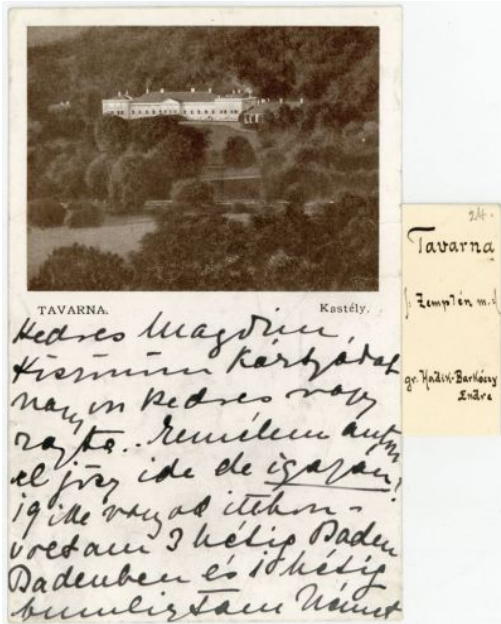 TAVARNA.
Kastély.
Kedves Magdim,
Kártyádat
nagyon kedves vagy
rajta. Remélem
el jösz ide de igazán!
voltam 3 hétig Baden
Badenben és 1 hétig
Német
24.
Tavarna
Zemplén m.
gr. Hadik-Barkóczy
Endre